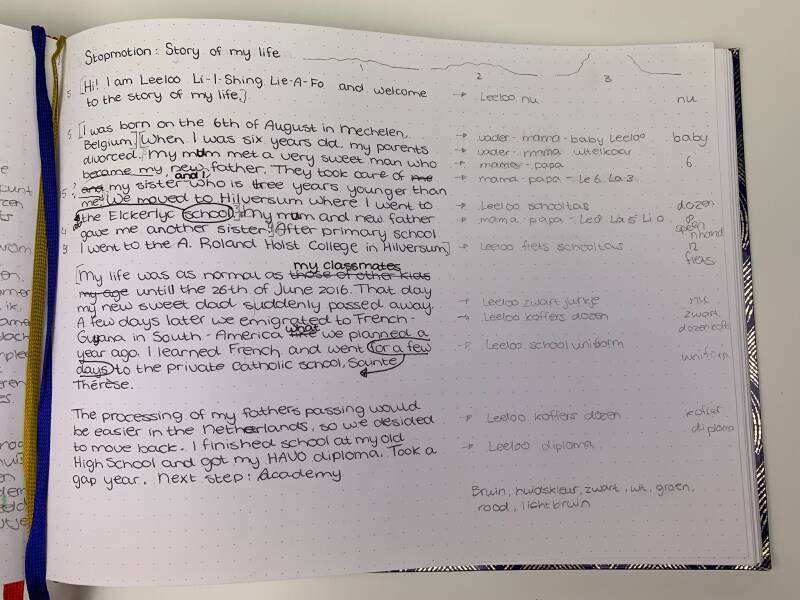 Stopmotion: Story of my life
1 2 3
5 [Hi! I am Leeloo Li-I-Shing Lie-A-Fo and welcome → Leeloo nu nu
to the story of my life.]
5 [I was born on the 6th of August in Mechelen, → vader-mama-baby Leeloo baby
Belgium.] [When I was six years old, my parents → vader-mama uitelkaar
divorced. My mum met a very sweet man who → mama-papa 6
became my new father. They took care of me → mama-papa-Le6 La3
5? and and I my sister who is three years younger than
me. We moved to Hilversum where I went to → Leeloo schooltas dozen
the Elckerlyc school. My mum and new father → mama-papa-Le8 La5 Li0 8
4 gave me another sister.] [After primary school speen
3 I went to the A. Roland Holst College in Hilversum] → Leeloo fiets schooltas 12
fiets
my classmates
[My life was as normal as those of other kids
my age until the 26th of June 2016. That day
my new sweet dad suddenly passed away. → Leeloo zwart jurkje nu
A few days later we emigrated to French- → Leeloo koffers dozen zwart
Guyana in South-America what like we planned a dozen koff
year ago. I learned French and went for a few → Leeloo schooluniform
days to the private catholic school, Sainte uniform
Thérèse.
The processing of my fathers passing would
be easier in the Netherlands, so we desided → Leeloo koffers dozen koffer
to move back. I finished school at my old → Leeloo diploma diploma
High School and got my HAVO diploma. Took a
gap year. Next step: Academy
Bruin, huidskleur, zwart, wit, groen,
rood, lichtbruin